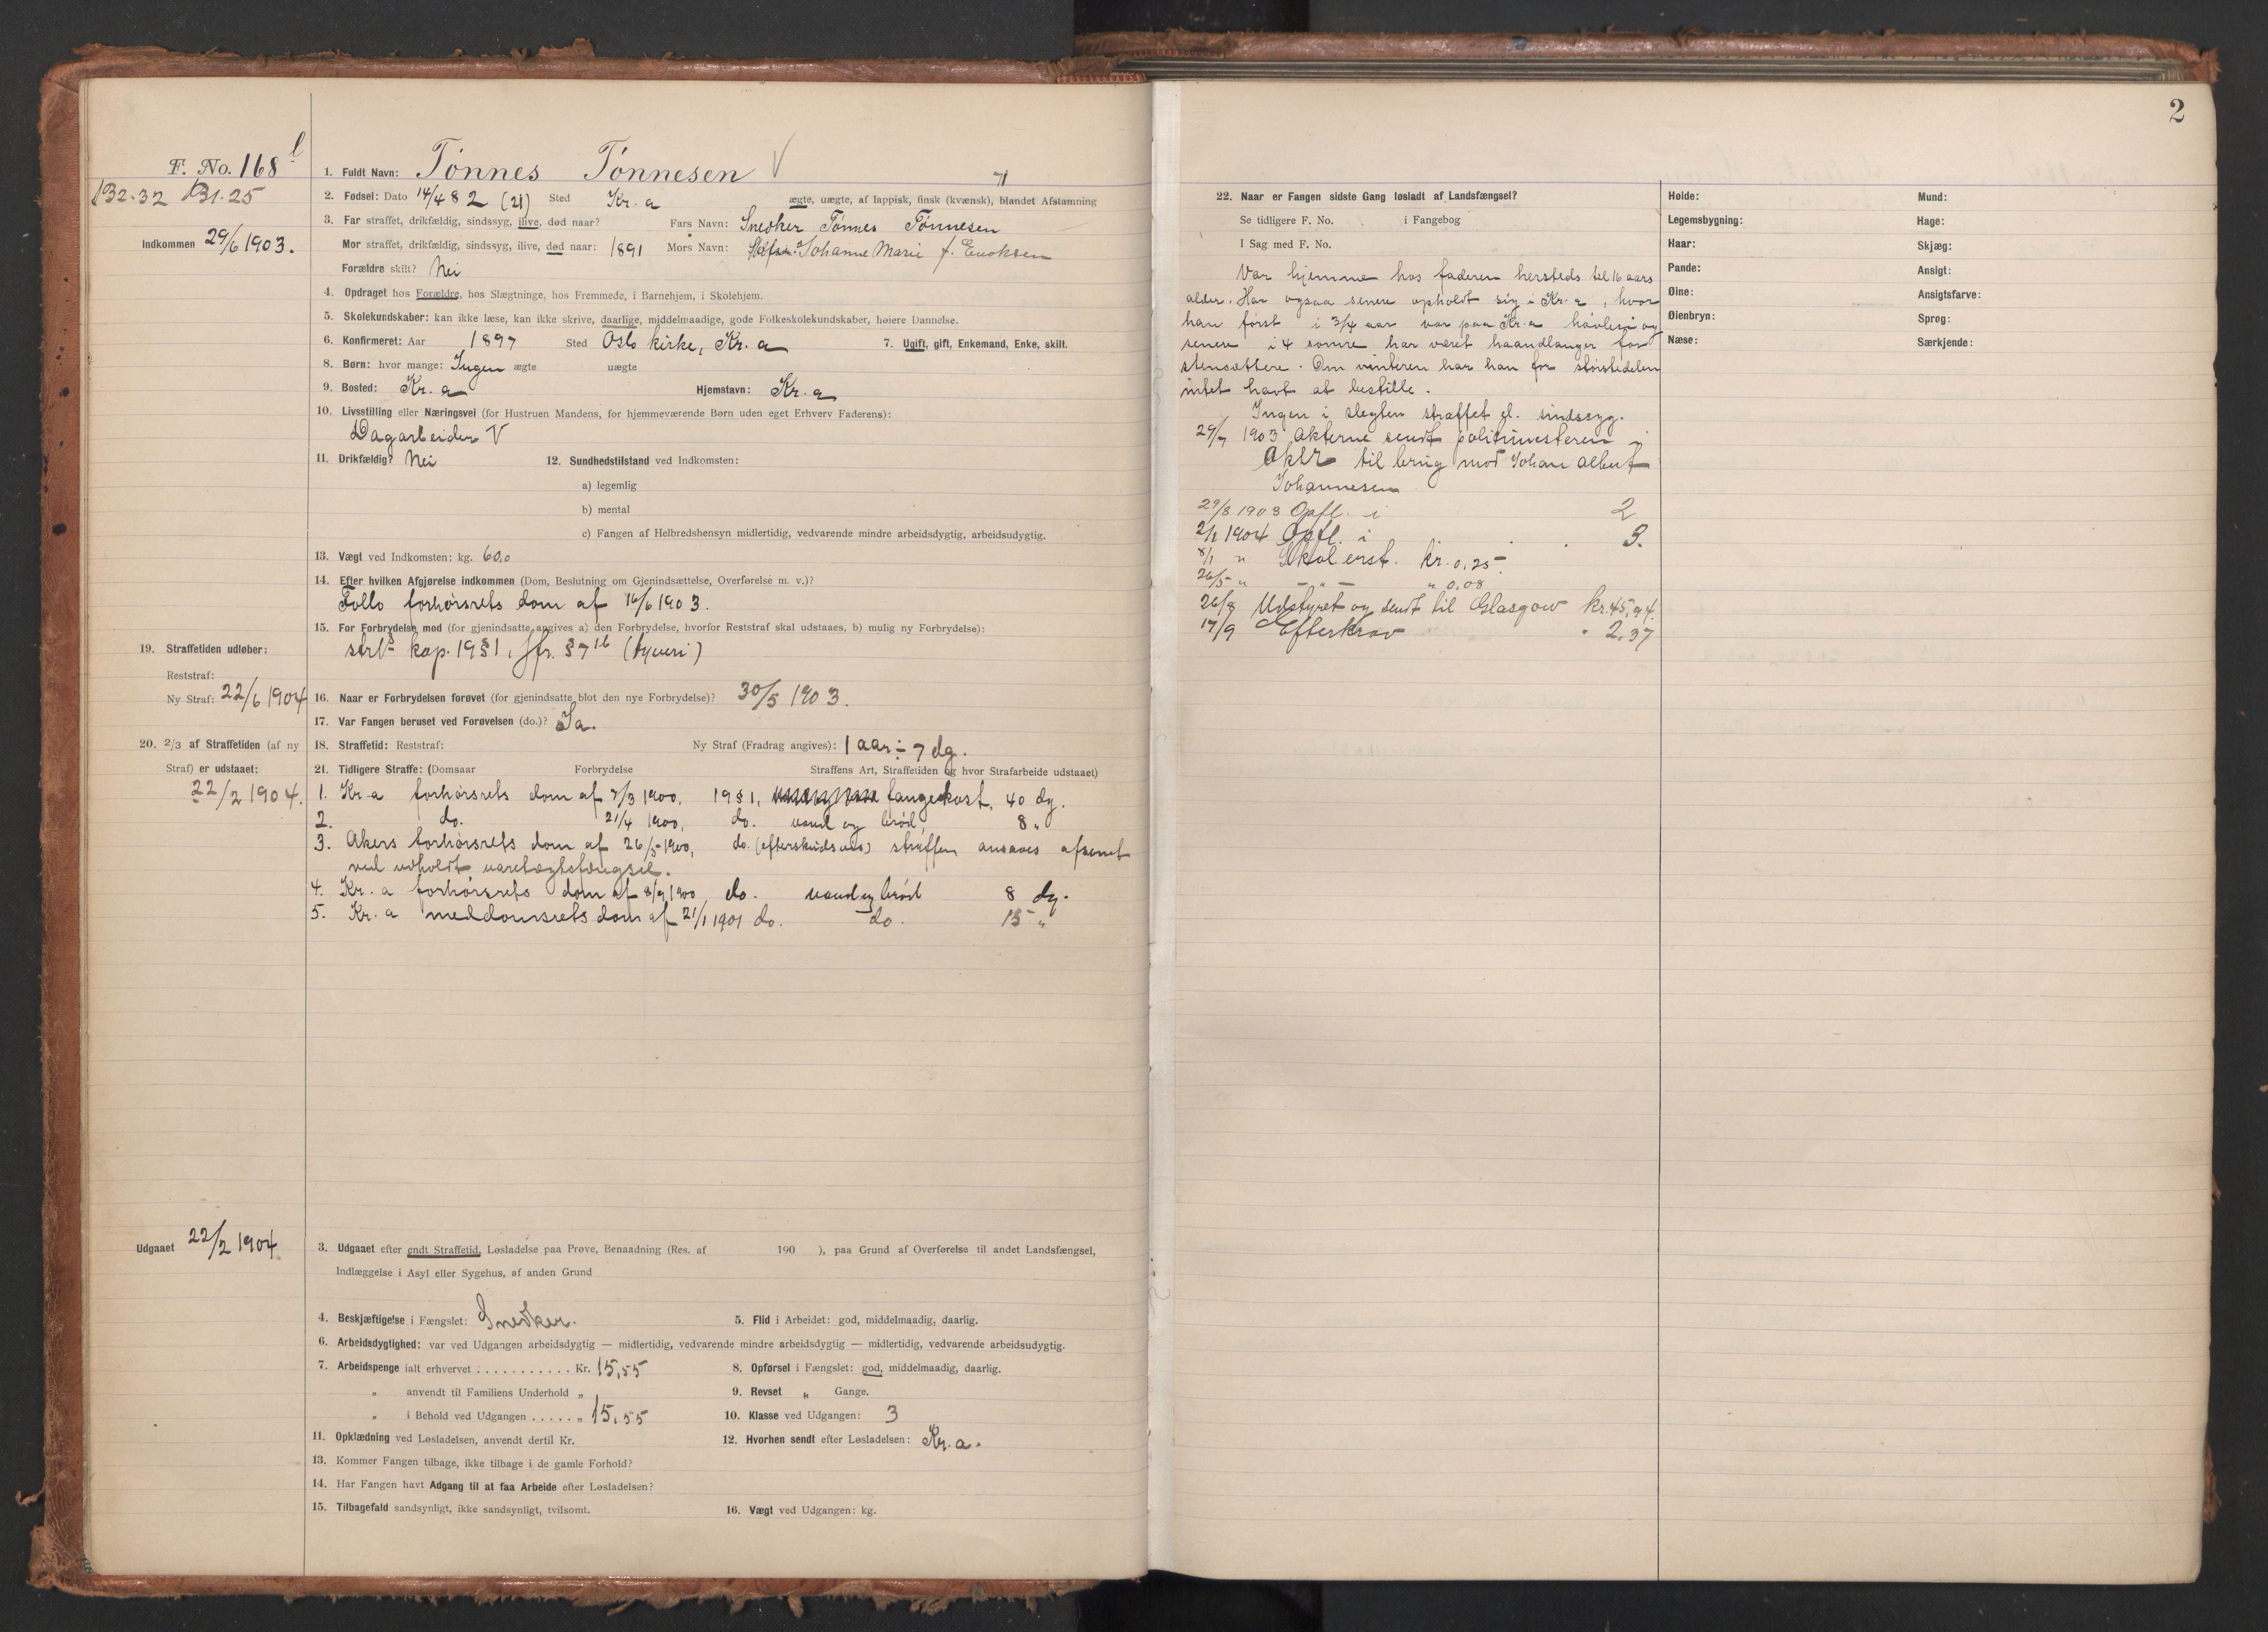 2
F. No. 168 l
132.32 131.25
Indkommen 29/6 1903.
1. Fuldt Navn: Tønnes Tønnesen V
2. Fødsel: Dato 14/4 82 (21) Sted Kr.a ægte, uægte, af lappisk, finsk (kvænsk), blandet Afstamning
3. Far straffet, drikfældig, sindssyg, ilive, død naar? Fars Navn: Snedker Tønnes Tønnesen
Mor straffet, drikfældig, sindssyg, ilive, død naar: 1891 Mors Navn: Johanne Marie f. Enoksen
Forældre skilt? Nei
4. Opdraget hos Forældre, hos Slægtninge, hos Fremmede, i Barnehjem, i Skolehjem.
5. Skolekundskaber: kan ikke læse, kan ikke skrive, daarlige, middelmaadige, gode Folkeskolekundskaber, høiere Dannelse.
6. Konfirmeret: Aar 1897 Sted Oslo kirke, Kr.a 7. Ugift, gift, Enkemand, Enke, skilt.
8. Børn: hvor mange: Ingen ægte uægte
9. Bosted: Kr.a Hjemstavn: Kr.a
10. Livsstilling eller Næringsvei (for Hustruen Mandens, for hjemmeværende Børn uden eget Erhverv Faderens):
Dagarbeider V
11. Drikfældig? Nei 12. Sundhedstilstand ved Indkomsten:
a) legemlig
b) mental
c) Fangen af Helbredshensyn midlertidig, vedvarende mindre arbeidsdygtig, arbeidsudygtig.
13. Vægt ved Indkomsten: kg. 60,0
14. Efter hvilken Afgjørelse indkommen (Dom, Beslutning om Gjenindsættelse, Overførelse m. v.)?
Follo forhørsrets dom af 16/6 1903.
15. For Forbrydelse mod (for gjenindsatte angives a) den Forbrydelse, hvorfor Reststraf skal udstaaes, b) mulig ny Forbrydelse):
kap. 19 § 1, jfr. § 7 (tyveri)
19. Straffetiden udløber:
Reststraf:
Ny Straf: 22/6 1904
16. Naar er Forbrydelsen forøvet (for gjenindsatte blot den nye Forbrydelse)? 30/5 1903.
17. Var Fangen beruset ved Forøvelsen (do.)? Ja.
20. 2/3 af Straffetiden (af ny
Straf) er udstaaet:
22/2 1904.
18. Straffetid: Reststraf: Ny Straf (Fradrag angives): 1 aar ÷ 7 dg.
21. Tidligere Straffe: (Domsaar Forbrydelse Straffens Art, Straffetiden og hvor Strafarbeide udstaaet)
1. Kr.a forhørsrets dom af 7/3 1900, 19 § 1, fangekost, 40 dg.
2. do. 21/4 1900, do. vand og brød, 8 "
3. Akers forhørsrets dom af 26/5 1900, do. straffen ansaaes afsonet
ved udholdt varetægtsfængsel.
4. Kr.a forhørsrets dom af 8/9 1900 do. vand og brød 8 dg.
5. Kr.a meddomsrets dom af 21/1 1901 do. do. 15 "
Udgaaet 22/2 1904
3. Udgaaet efter endt Straffetid, Løsladelse paa Prøve, Benaadning (Res. af 190 ), paa Grund af Overførelse til andet Landsfængsel,
Indlæggelse i Asyl eller Sygehus, af anden Grund
4. Beskjæftigelse i Fængslet: Snedker. 5. Flid i Arbeidet: god, middelmaadig, daarlig.
6. Arbeidsdygtighed: var ved Udgangen arbeidsdygtig — midlertidig, vedvarende mindre arbeidsdygtig — midlertidig, vedvarende arbeidsudygtig.
7. Arbeidspenge ialt erhvervet . . . . . . . . . . . Kr. 15,55 8. Opførsel i Fængslet: god, middelmaadig, daarlig.
" anvendt til Familiens Underhold " 9. Revset " Gange.
" i Behold ved Udgangen . . . . . " 15,55 10. Klasse ved Udgangen: 3
11. Opklædning ved Løsladelsen, anvendt dertil Kr. 12. Hvorhen sendt efter Løsladelsen: Kr.a.
13. Kommer Fangen tilbage, ikke tilbage i de gamle Forhold?
14. Har Fangen havt Adgang til at faa Arbeide efter Løsladelsen?
15. Tilbagefald sandsynligt, ikke sandsynligt, tvilsomt. 16. Vægt ved Udgangen: kg.
22. Naar er Fangen sidste Gang løsladt af Landsfængsel?
Se tidligere F. No. i Fangebog
I Sag med F. No.
Var hjemme hos faderen hersteds til 16 aars
alder. Har ogsaa senere opholdt sig i Kr.a, hvor
han først i 3/4 aar var paa Kr.a høvleri og
senere i 4 somre har været haandlanger for
stensættere. Om vinteren har han for størstedelen
intet havt at bestille.
Ingen i slegten straffet el. sindssyg.
29/7 1903 Akterne sendt politimesteren i
Aker til brug mod Johan Albert
Johannesen
29/8 1903 Opfl. i 2
2/1 1904 Opfl. i 3.
8/1 " Skol erst. kr. 0,25
26/5 " — " — " 0,08
26/8 Udstyret og sendt til Glasgow kr. 45,94.
17/9 Efterkrav " 2,37
Høide:
Legemsbygning:
Haar:
Pande:
Øine:
Øienbryn:
Næse:
Mund:
Hage:
Skjæg:
Ansigt:
Ansigtsfarve:
Sprog:
Særkjende: